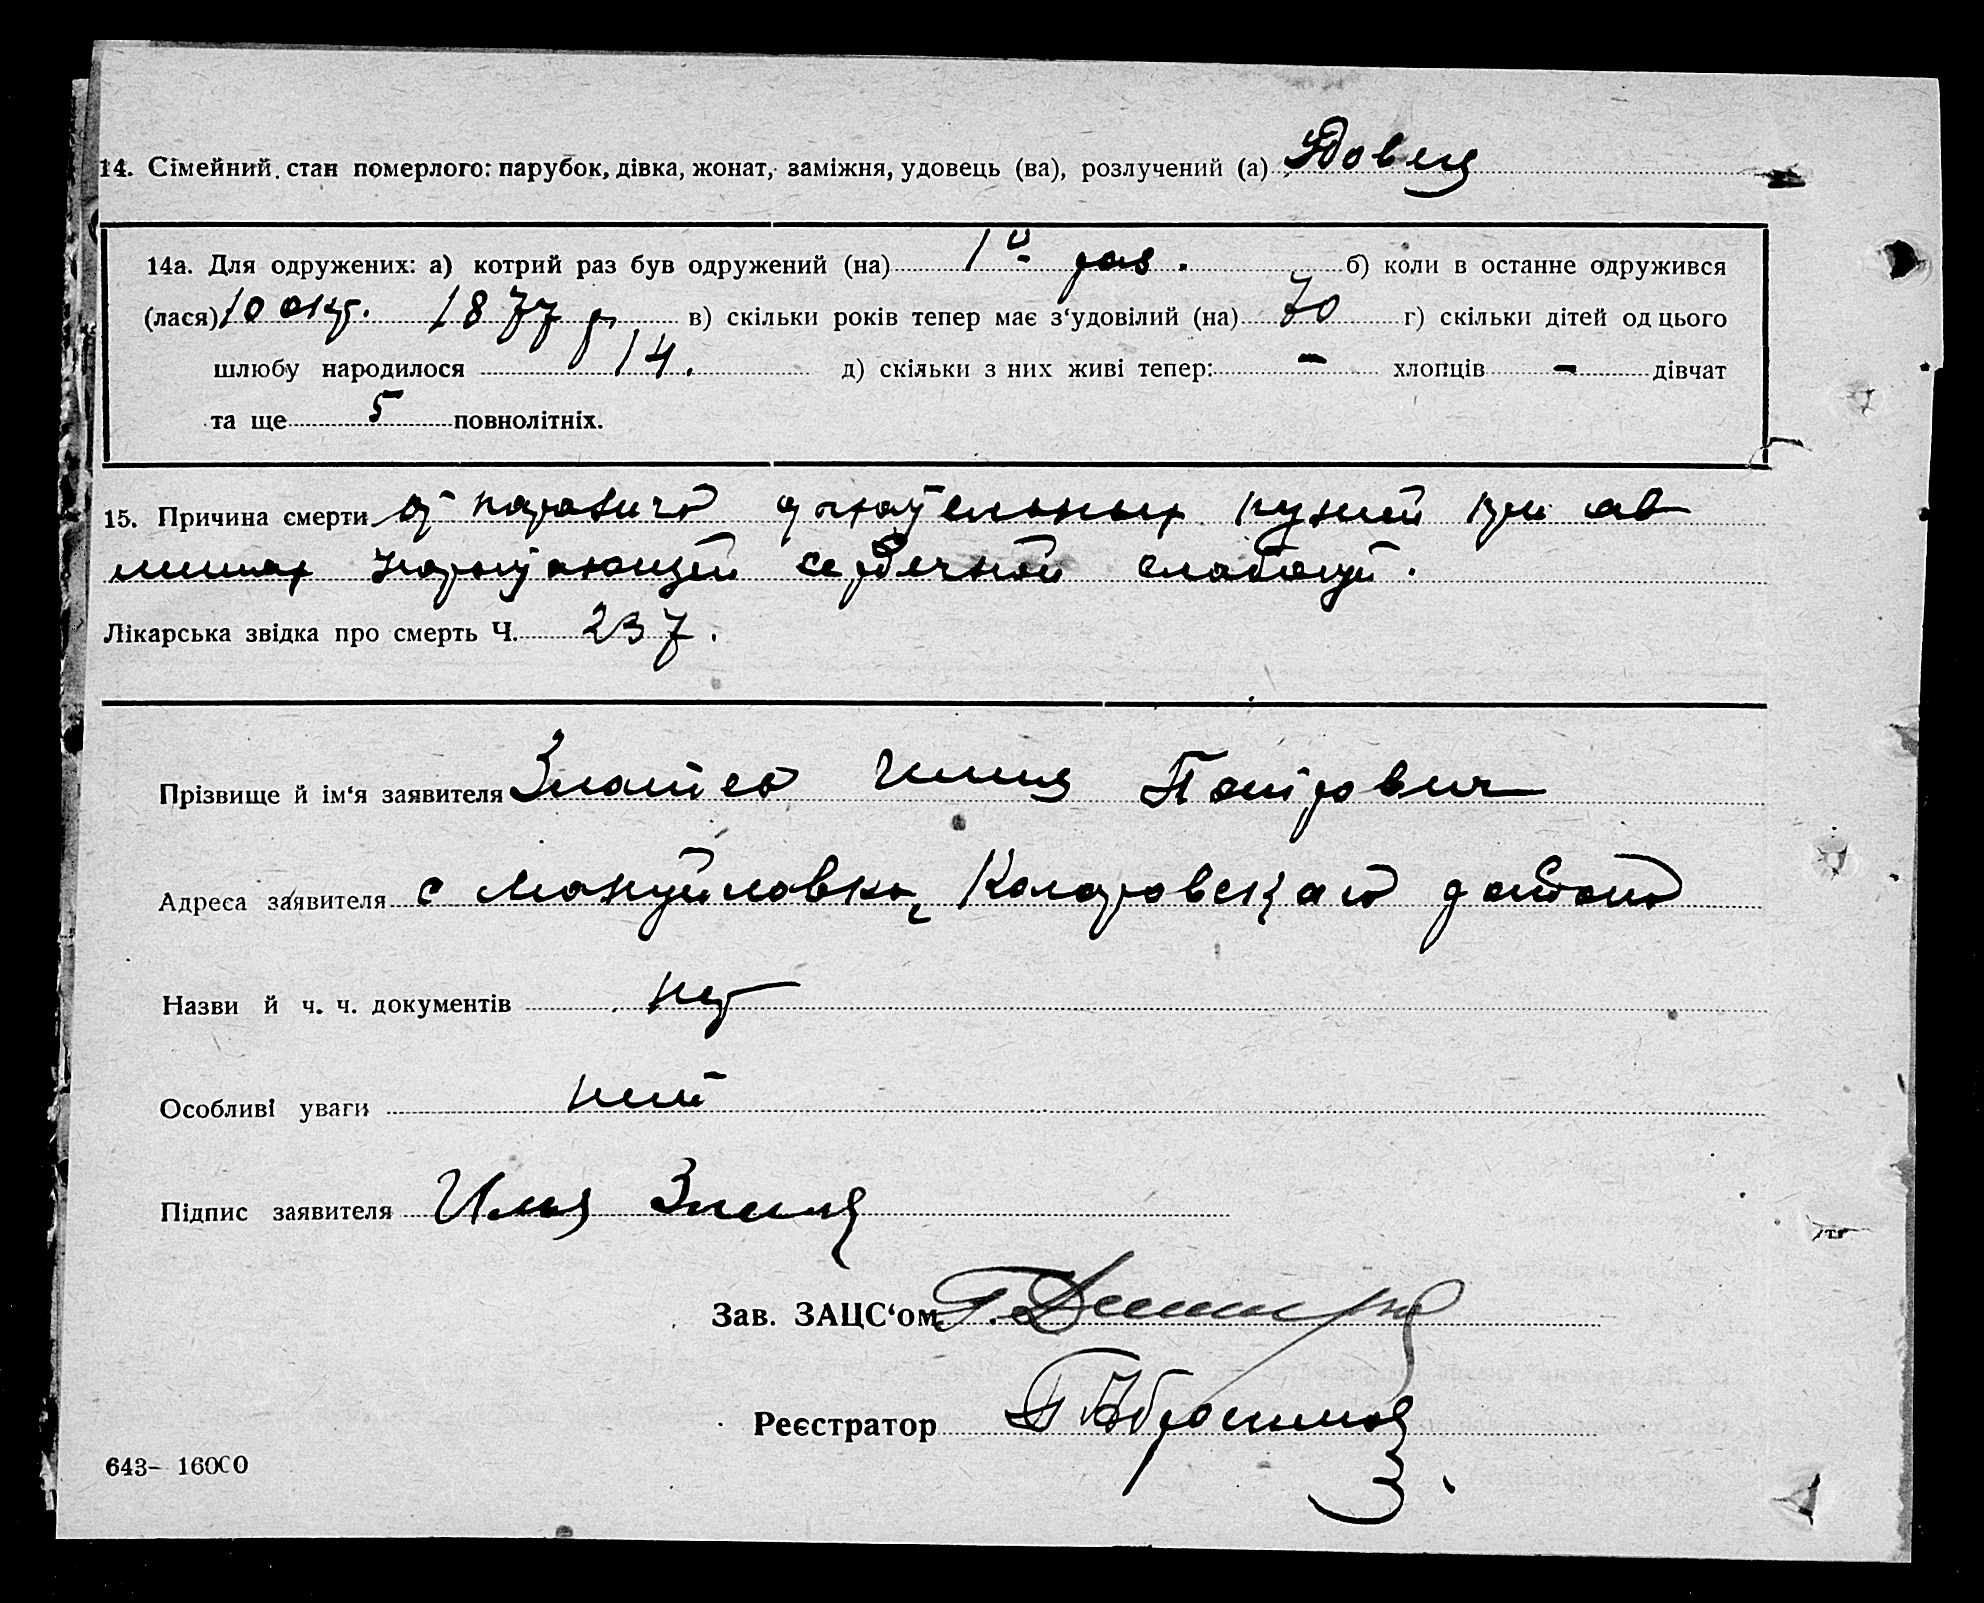 14. Сімейний стан померлого: парубок, дівка, жонат, заміжня, удовець (ва), розлучений (а) Вдовец
14а. Для одружених: а) котрий раз був одружений (на) 1й раз. б) коли в останнє одружився
(лася) 10 окт. 1877 г. в) скільки років тепер має з'удовілий (на) 70 г) скільки дітей од цього
шлюбу народилося 14. д) скільки з них живі тепер: – хлопців – дівчат
та ще 5 повнолітніх.
15. Причина смерти от паралича дыхательных путей при
сердечной слабости.
Лікарська звідка про смерть Ч. 237.
Прізвище й ім'я заявителя Илия Петрович
Адреса заявителя с Мануйловка, Коларовского района
Назви й ч. ч. документів нет
Особливі уваги нет
Підпис заявителя Илья
Зав. ЗАЦС'ом Г.
Реєстратор Абросимов
643– 16000